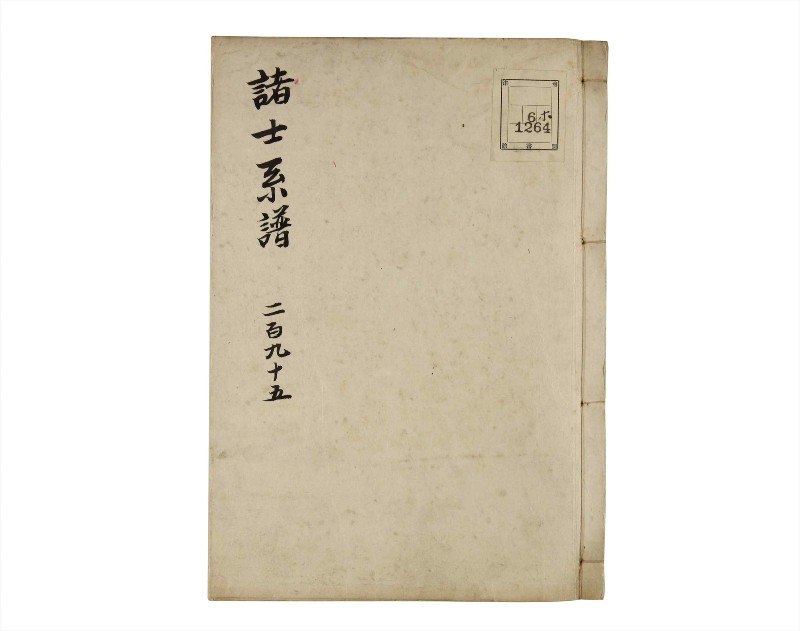 諸士系譜
二百九十五
ホ
6
1264